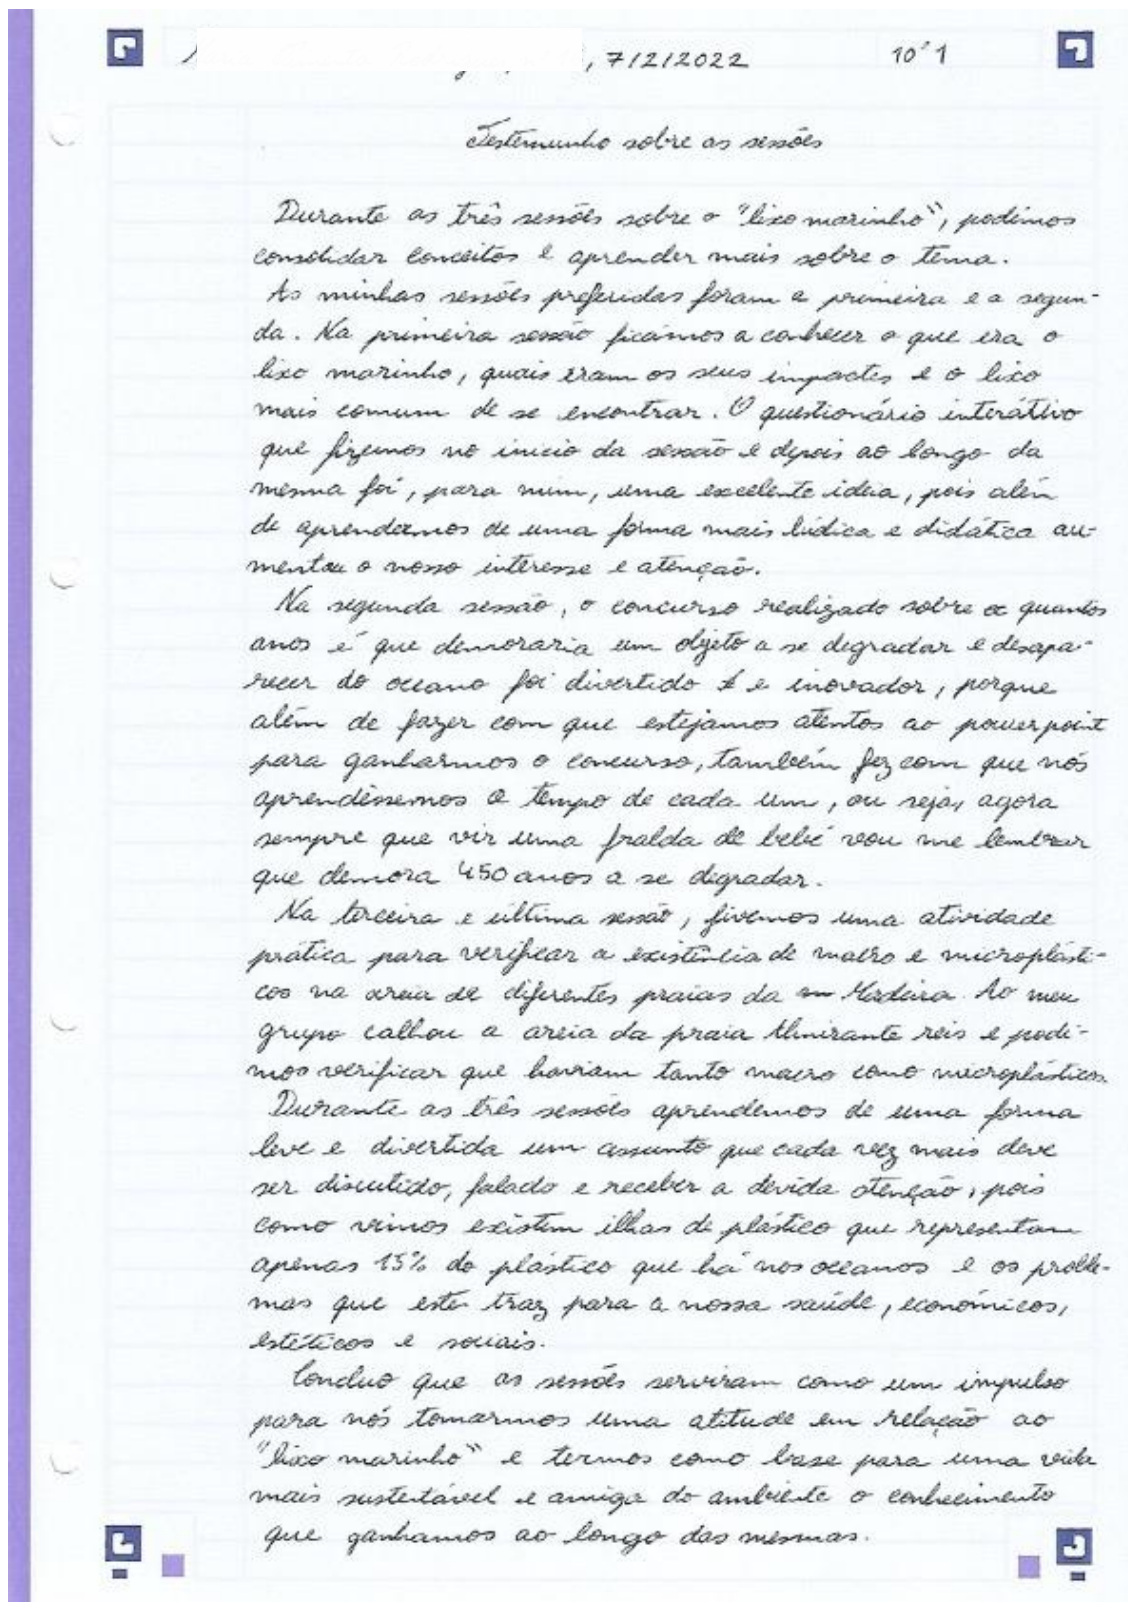 , 7/2/2022 10º1
Testemunho sobre as sessões
Durante as três sessões sobre o "lixo marinho", podimos
consolidar conceitos e aprender mais sobre o tema.
As minhas sessões preferidas foram a primeira e a segun-
da. Na primeira sessão ficámos a conhecer o que era o
lixo marinho, quais eram os seus impactes e o lixo
mais comum de se encontrar. O questionário interátivo
que fizemos no inicio da sessão e depois ao longo da
mesma foi, para mim, uma excelente ideia, pois além
de aprendermos de uma forma mais lúdica e didática au-
mentou o nosso interesse e atenção.
Na segunda sessão, o concurso realizado sobre quantos
anos é que demoraria um objeto a se degradar e desapa-
recer do oceano foi divertido e inovador, porque
além de fazer com que estejamos atentos ao powerpoint
para ganharmos o concurso, também fez com que nós
aprendêssemos o tempo de cada um, ou seja, agora
sempre que vir uma fralda de bebé vou me lembrar
que demora 450 anos a se degradar.
Na terceira e última sessão, tivemos uma atividade
prática para verificar a existência de macro e microplásti-
cos na areia de diferentes praias da Madeira. Ao meu
grupo calhou a areia da praia Almirante reis e podi-
mos verificar que haviam tanto macro como microplásticos.
Durante as três sessões aprendemos de uma forma
leve e divertida um assunto que cada vez mais deve
ser discutido, falado e receber a devida atenção, pois
como vimos existem ilhas de plástico que representam
apenas 15% do plástico que há nos oceanos e os proble-
mas que este traz para a nossa saúde, económicos,
estéticos e sociais.
Concluo que as sessões serviram como um impulso
para nós tomarmos uma atitude em relação ao
"lixo marinho" e termos como base para uma vida
mais sustentável e amiga do ambiente o conhecimento
que ganhamos ao longo das mesmas.